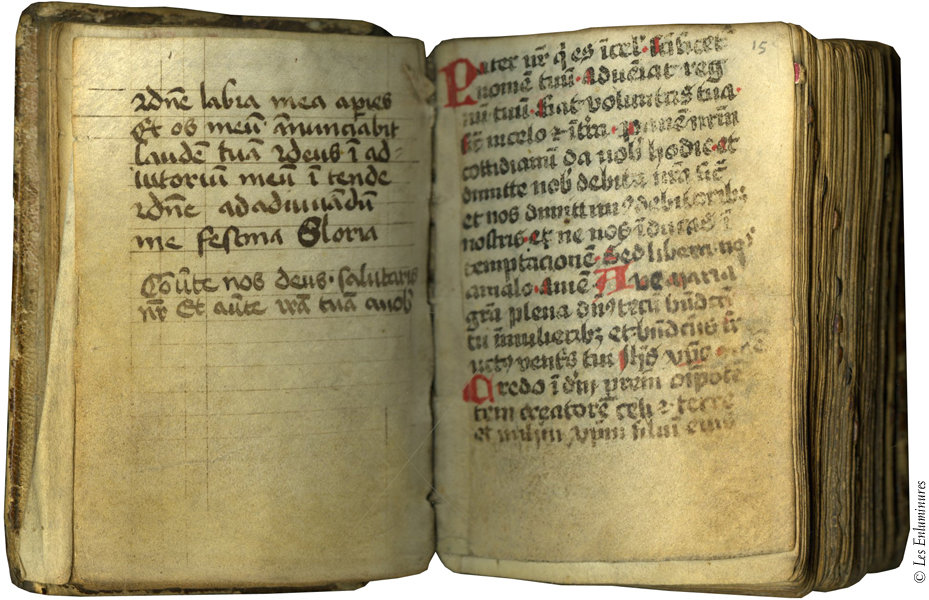 Dñe labia mea apies
Et os meũ ãnunciabit
laudẽ tuã Deus ĩ ad-
iutoriũ meũ ĩ tende
Dñe ad adiuuãdũ
me festina Gloria
Cõũte nos deus · salutaris
nr̃ Et aũte irã tuã a nob
15
Pater nr̃ q̃ es ĩ cel ·
nomẽ tuũ · adueniat reg
nũ tuũ · fiat voluntas tua ·
ĩ celo ⁊ ĩ tr̃a · panẽ nr̃m
cottidianũ da nob hodie · et
dimitte nob debita nr̃a
et nos dimittimꝰ debitorib;
nostris · et ne nos ĩducas ĩ
temptacionẽ · Sed libera nos
a malo · amẽ · Aue maria
gr̃a plena dñs tecũ
tu ĩ mulierib; et fr
uctꝰ ventris tui ihs
Credo ĩ dm̃ prem oĩpotẽ
tem creatorẽ celi ⁊ terre
et filiũ eius
© Les Enluminures